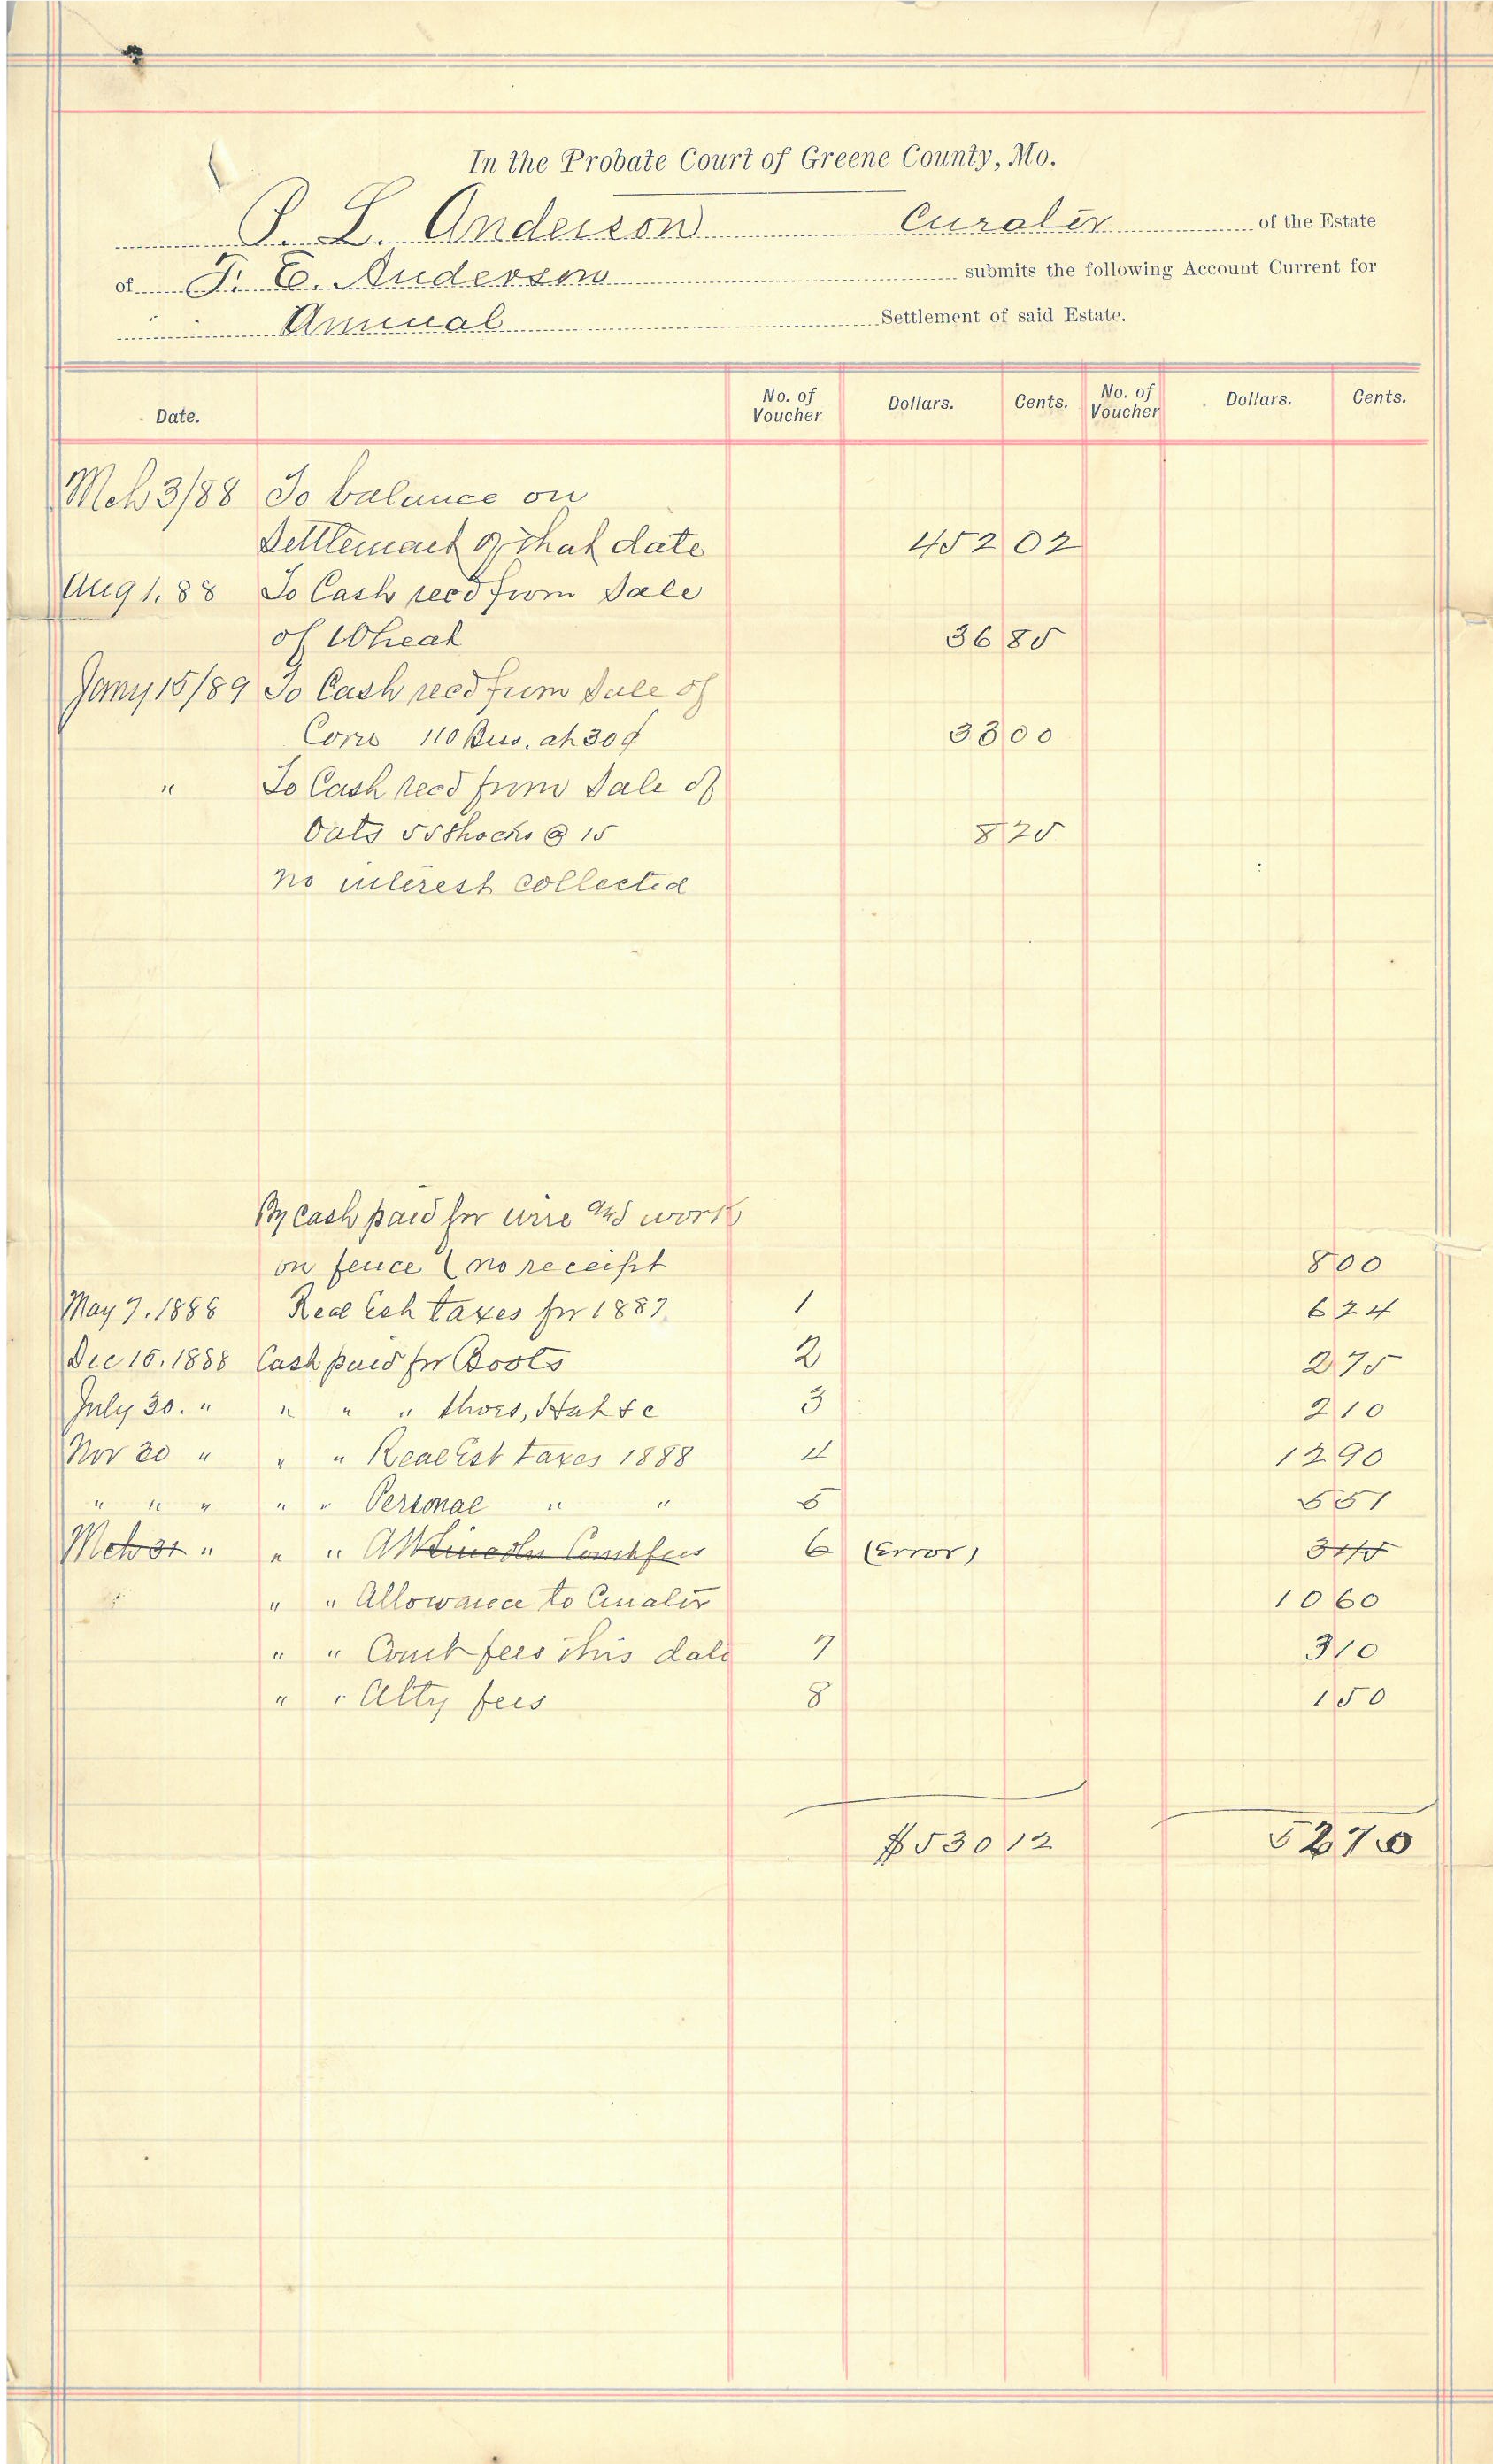 In the Probate Court of Greene County, Mo.
P. L. Anderson Curator of the Estate
of F. E. Anderson submits the following Account Current for
Annual Settlement of said Estate.
Date. No. of Voucher Dollars. Cents. No. of Voucher Dollars. Cents.
Mch 3/88 To balance on
Settlement of that date 452 02
Aug 1, 88 To Cash recd from Sale
of Wheat 36 85
Jany 15/89 To Cash recd from Sale of
Corn 110 Bus. at 30¢ 33 00
" To Cash recd from Sale of
Oats 55 Shocks @ 15 8 25
No interest collected
By Cash paid for wire and work
on fence (no receipt 8 00
May 7, 1888 Real Est taxes for 1887 1 6 24
Dec 15, 1888 Cash paid for Boots 2 2 75
July 30. " " " " Shoes, Hat &c 3 2 10
Nov 20 " " " Real Est taxes 1888 4 12 90
" " " " " Personal " " 5 5 51
Mch 31 " " " A W Lincoln Court fees 6 (Error) 3 45
" " Allowance to Curator 10 60
" " Court fees this date 7 3 10
" " Atty fees 8 1 50
$530 12 52 70